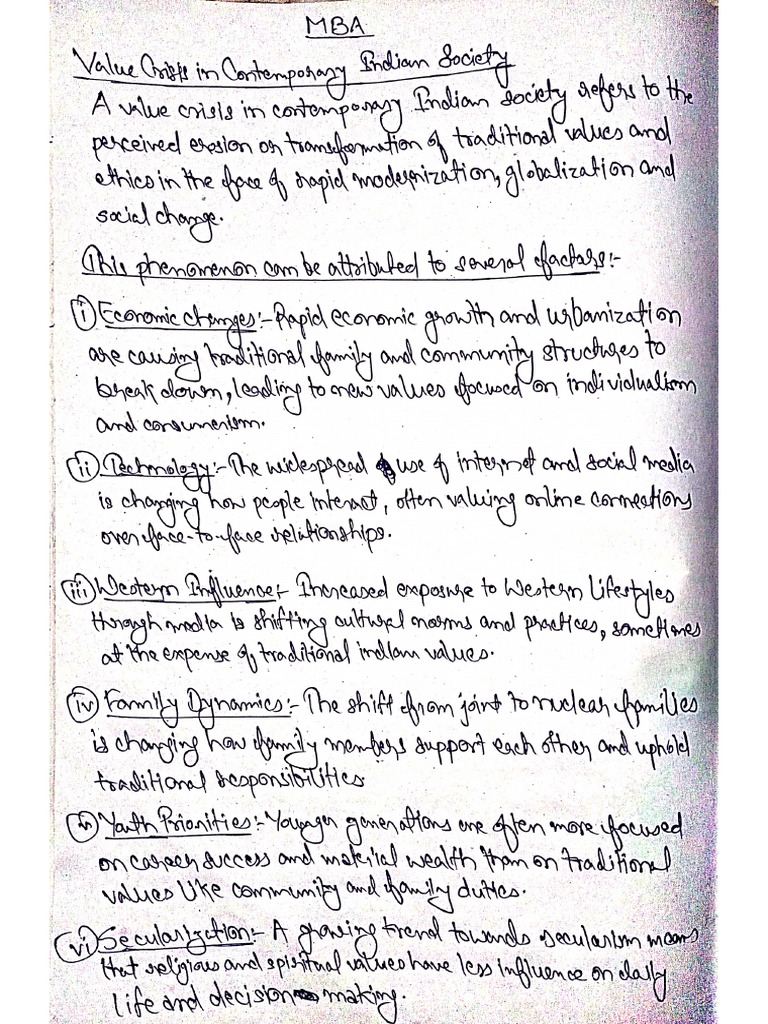 MBA
Value Crisis in Contemporary Indian Society
A value crisis in contemporary Indian society refers to the
perceived erosion or transformation of traditional values and
ethics in the face of rapid modernization, globalization and
social change.
This phenomenon can be attributed to several factors:-
(i) Economic changes:- Rapid economic growth and urbanization
are causing traditional family and community structures to
break down, leading to new values focused on individualism
and consumerism.
(ii) Technology:- The widespread use of internet and social media
is changing how people interact, often valuing online connections
over face-to-face relationships.
(iii) Western Influence:- Increased exposure to Western lifestyles
through media is shifting cultural norms and practices, sometimes
at the expense of traditional indian values.
(iv) Family Dynamics:- The shift from joint to nuclear families
is changing how family members support each other and uphold
traditional responsibilities
(v) Youth Priorities:- Younger generations are often more focused
on career success and material wealth than on traditional
values like community and family duties.
(vi) Secularization:- A growing trend towards secularism means
that religious and spiritual values have less influence on daily
life and decision making.